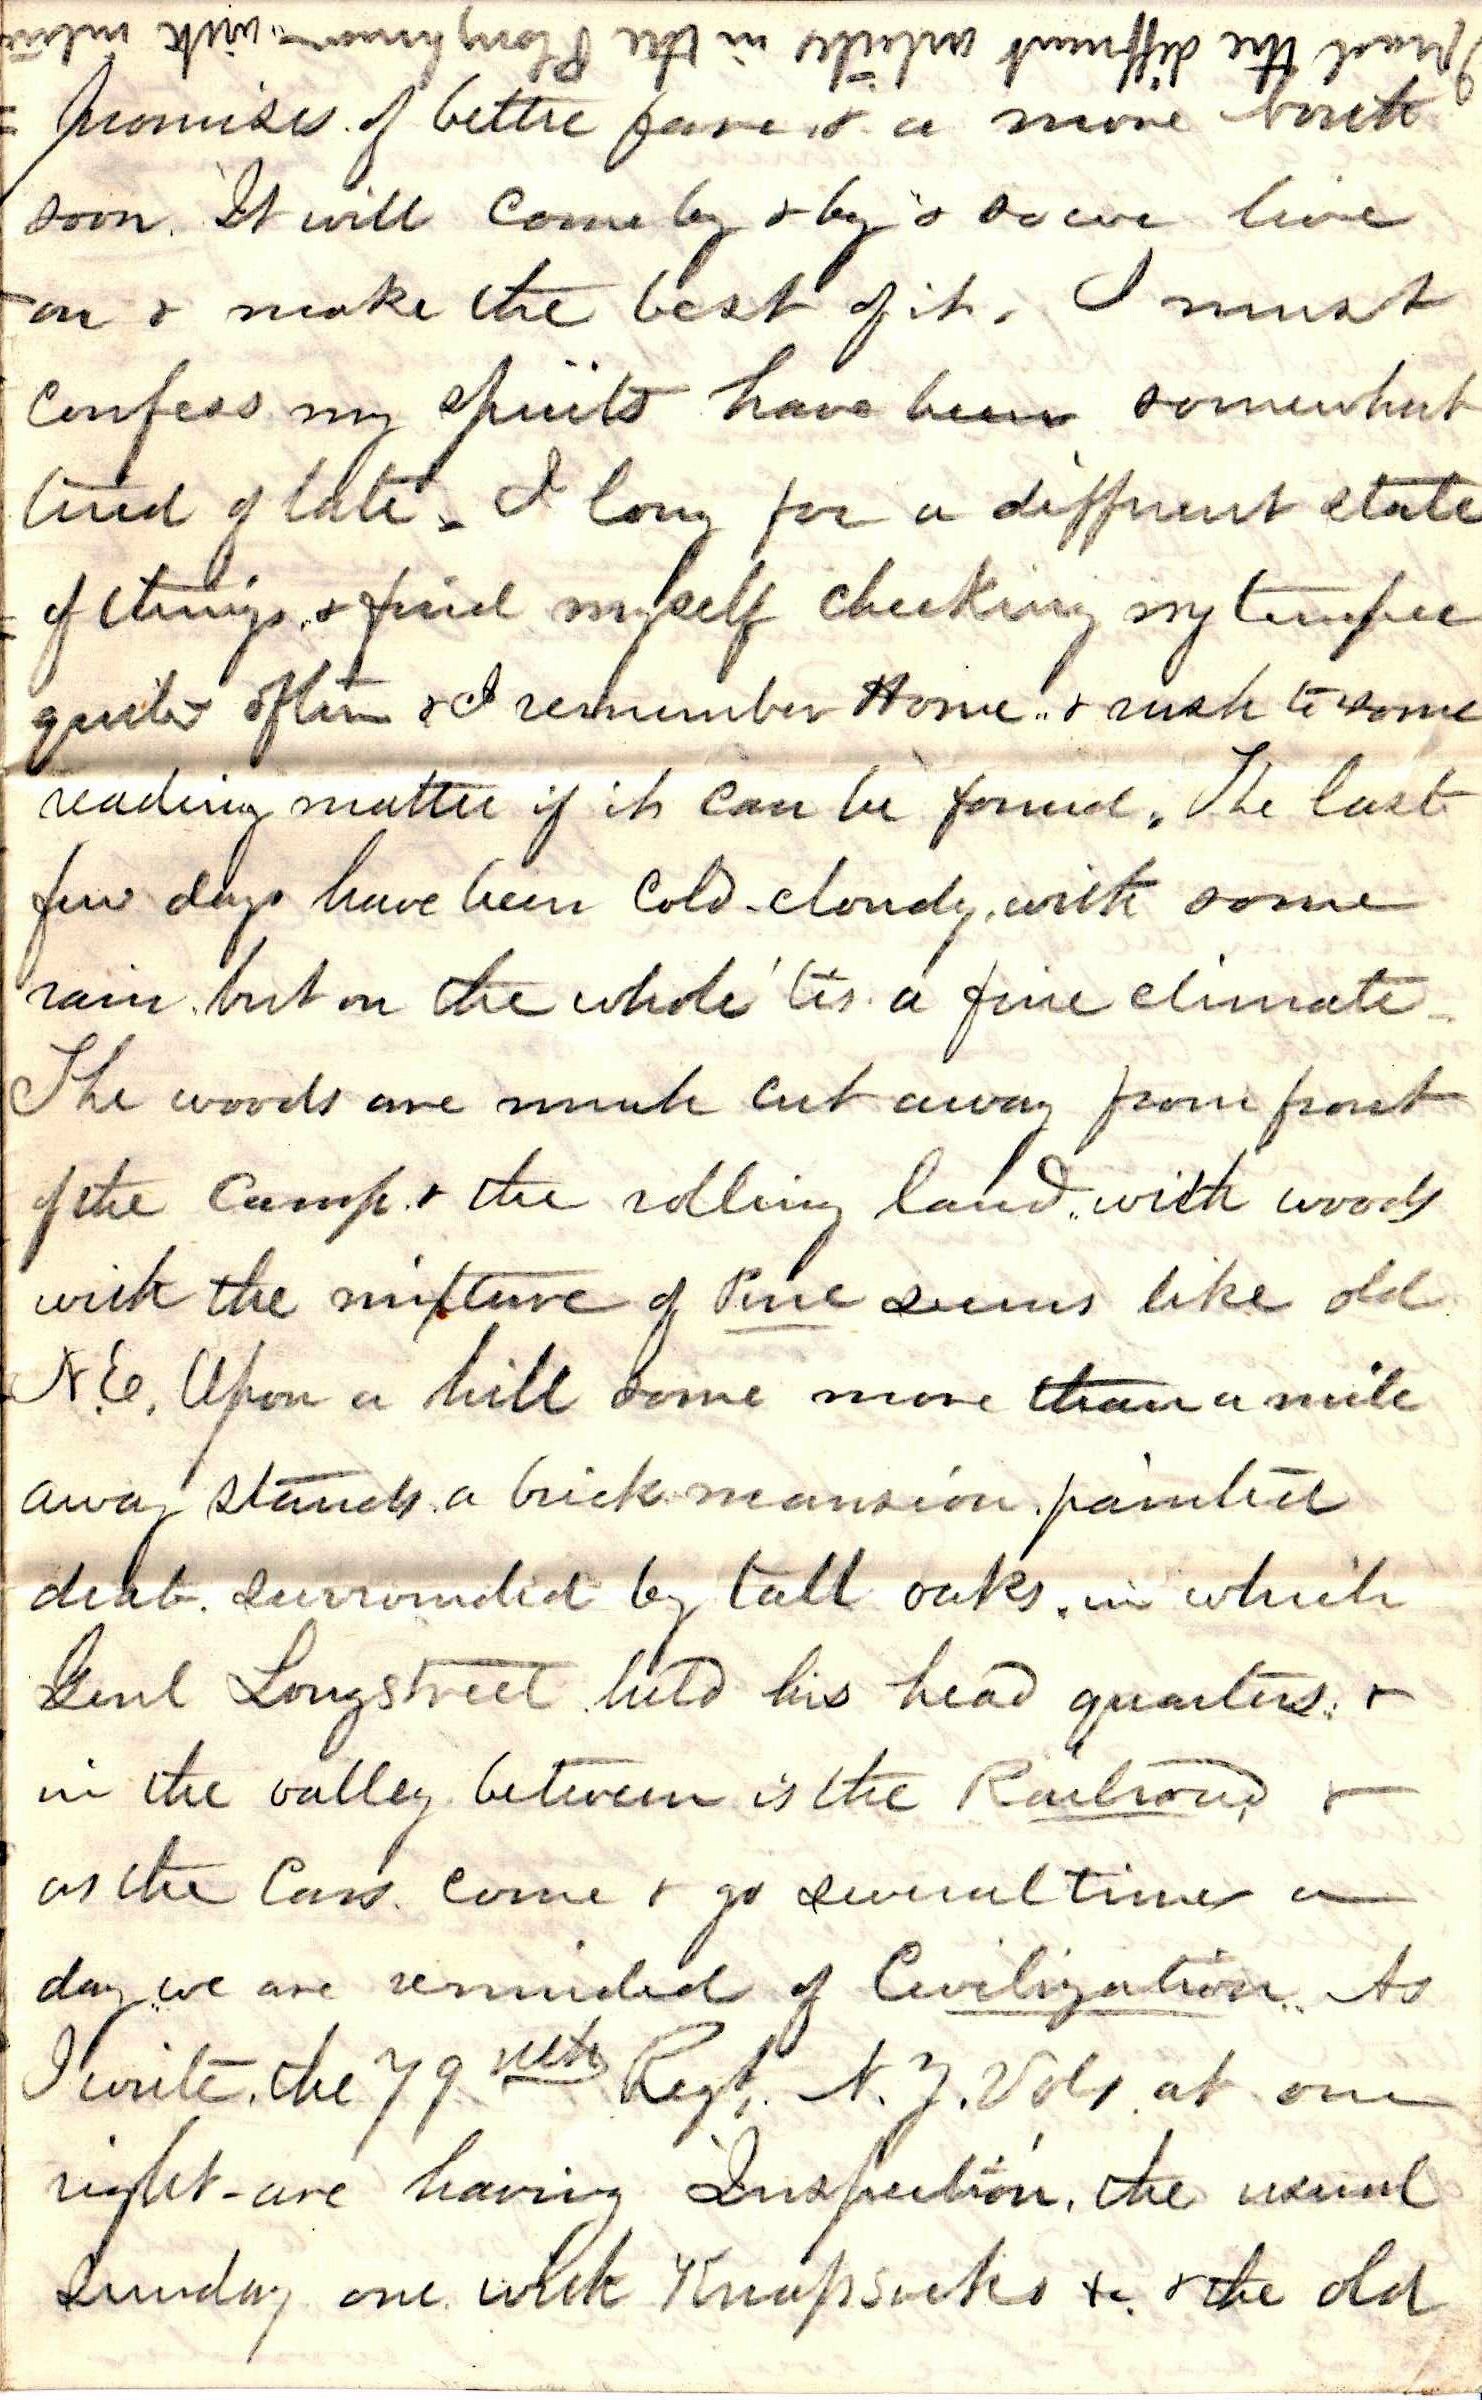 I read the different articles in the Ploughman with interes
promises of better fare & a more
soon. It will come by & by & so we live
on & make the best of it. I must
confess my spirits have been somewhat
tired of late. I long for a different state
of things, & find myself checking my temper
quite often & I remember Home & rush to some
reading matter if it can be found. The last
few days have been cold - cloudy, with some
rain. but on the whole 'tis a fine climate -
The woods are much cut away from front
of the Camp. & the rolling land, with woods
with the mixture of Pine seems like old
N.E. Upon a hill some more than a mile
away stands a brick mansion painted
drab. surrounded by tall oaks. in which
Genl Longstreet held his head quarters. &
in the valley between is the Railroad &
as the Cars come & go several times a
day we are reminded of Civilization. As
I write, the 79 Regt. N.Y. Vols. at our
right - are having Inspection, the usual
Sunday one with Knapsacks &c. & the old